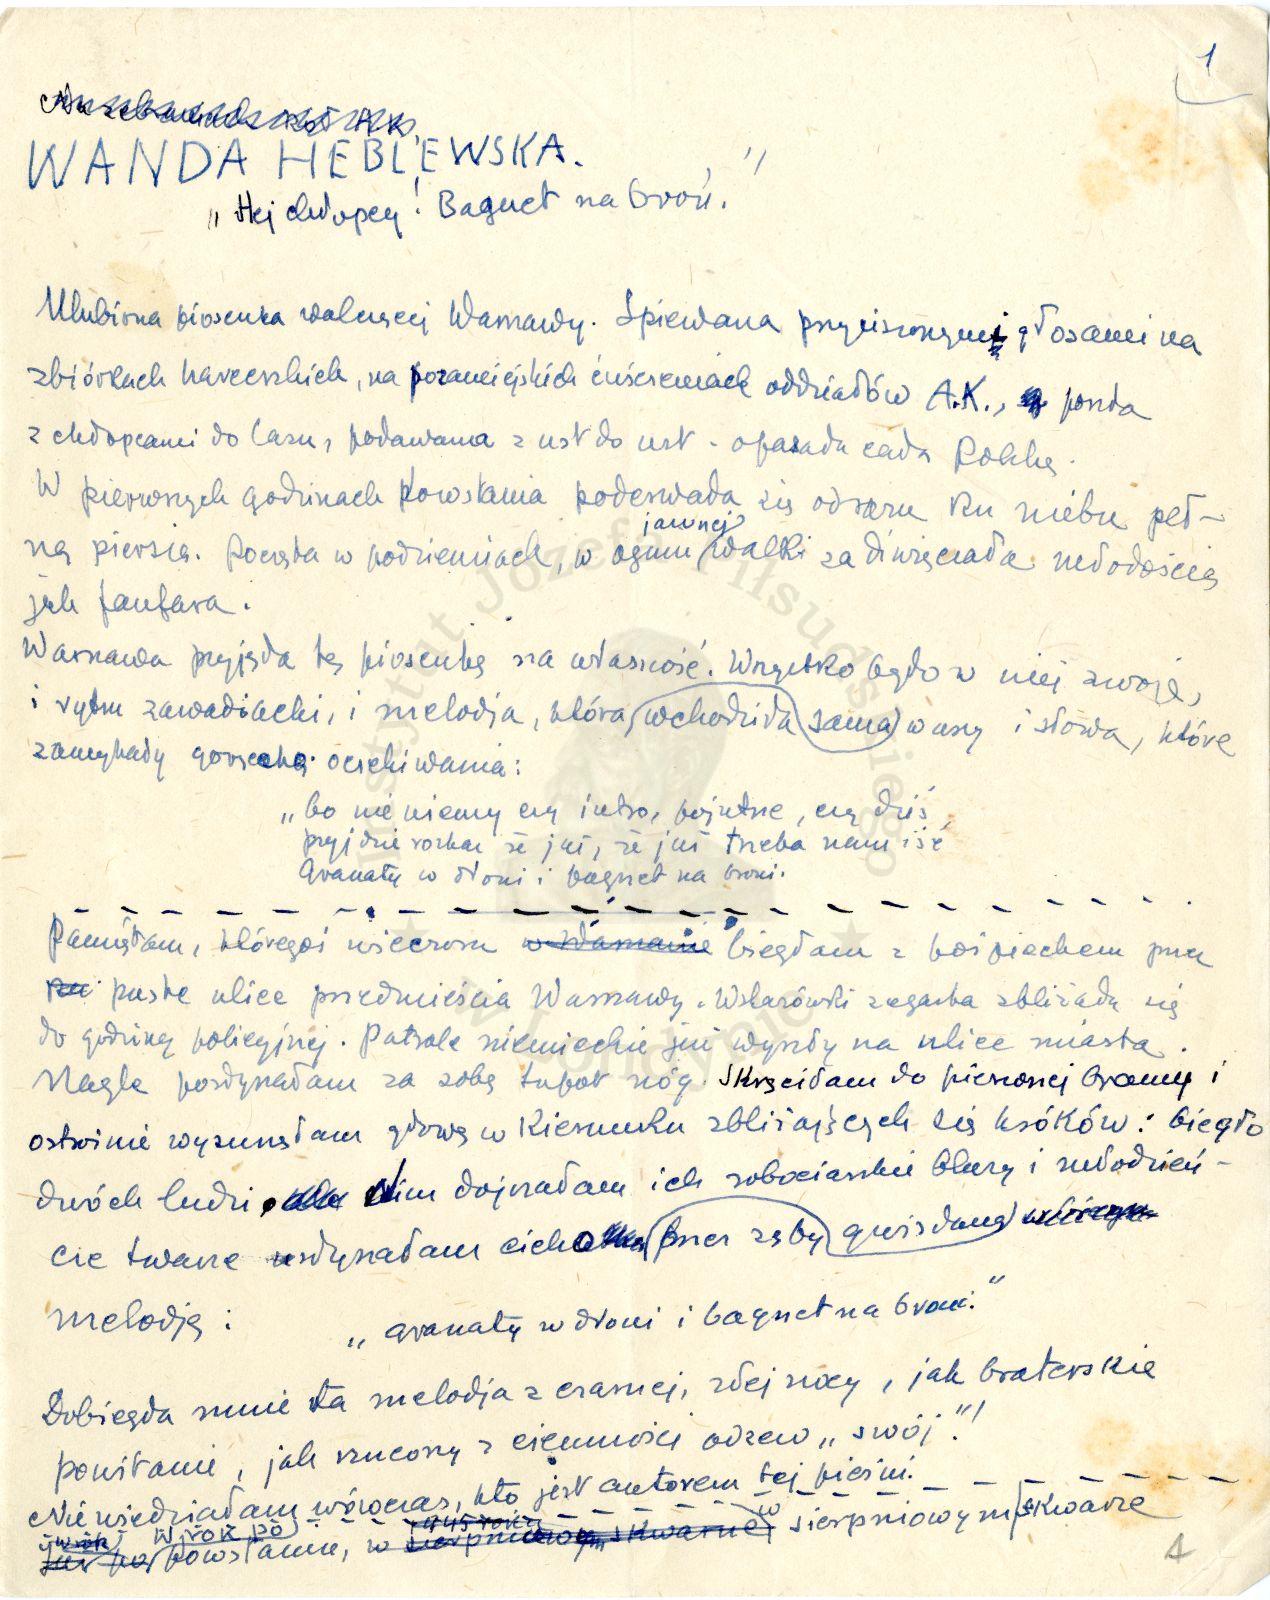 1
WANDA HEBLEWSKA.
„Hej chłopcy! Bagnet na broń."
Ulubiona piosenka walczącej Warszawy. Śpiewana przyciszonymi głosami na
zbiórkach harcerskich, na pozamiejskich ćwiczeniach oddziałów A.K., poszła
z chłopcami do lasu, podawana z ust do ust - opasała całą Polskę.
W pierwszych godzinach Powstania poderwała się odrazu ku niebu peł-
ną piersią. Poczęta w podziemiach, w ogniu jawnej walki zadźwięczała młodością
jak fanfara.
Warszawa przyjęła tę piosenkę na własność. Wszystko było w niej swoje,
i rytm zawadiacki, i melodja, która wchodziła sama w uszy i słowa, które
zamykały gorączkę oczekiwania:
„bo nie wiemy czy jutro, pojutrze, czy dziś,
przyjdzie rozkaz że już, że już trzeba nam iść
Granaty w dłoni i bagnet na broni.
Pamiętam, któregoś wieczoru w Warszawie biegłam z pośpiechem przez
puste ulice przedmieścia Warszawy. Wskazówki zegarka zbliżały się
do godziny policyjnej. Patrole niemieckie już wyszły na ulice miasta.
Nagle posłyszałam za sobą tupot nóg. Skręciłam do pierwszej bramy i
ostrożnie wysunęłam głowę w kierunku zbliżających się kroków: biegło
dwóch ludzi, Nim dojrzałam ich robociarskie bluzy i młodzień-
cze twarze usłyszałam cicho przez zęby gwizdaną
melodję:
„granaty w dłoni i bagnet na broni."
Dobiegła mnie ta melodja z czarnej, złej nocy, jak braterskie
powitanie, jak rzucony z ciemności odzew „swój"!
Nie wiedziałam wówczas, kto jest autorem tej pieśni.
W rok po Powstaniu, w sierpniowym skwarze
Instytut Józefa Piłsudskiego
w Londynie
1